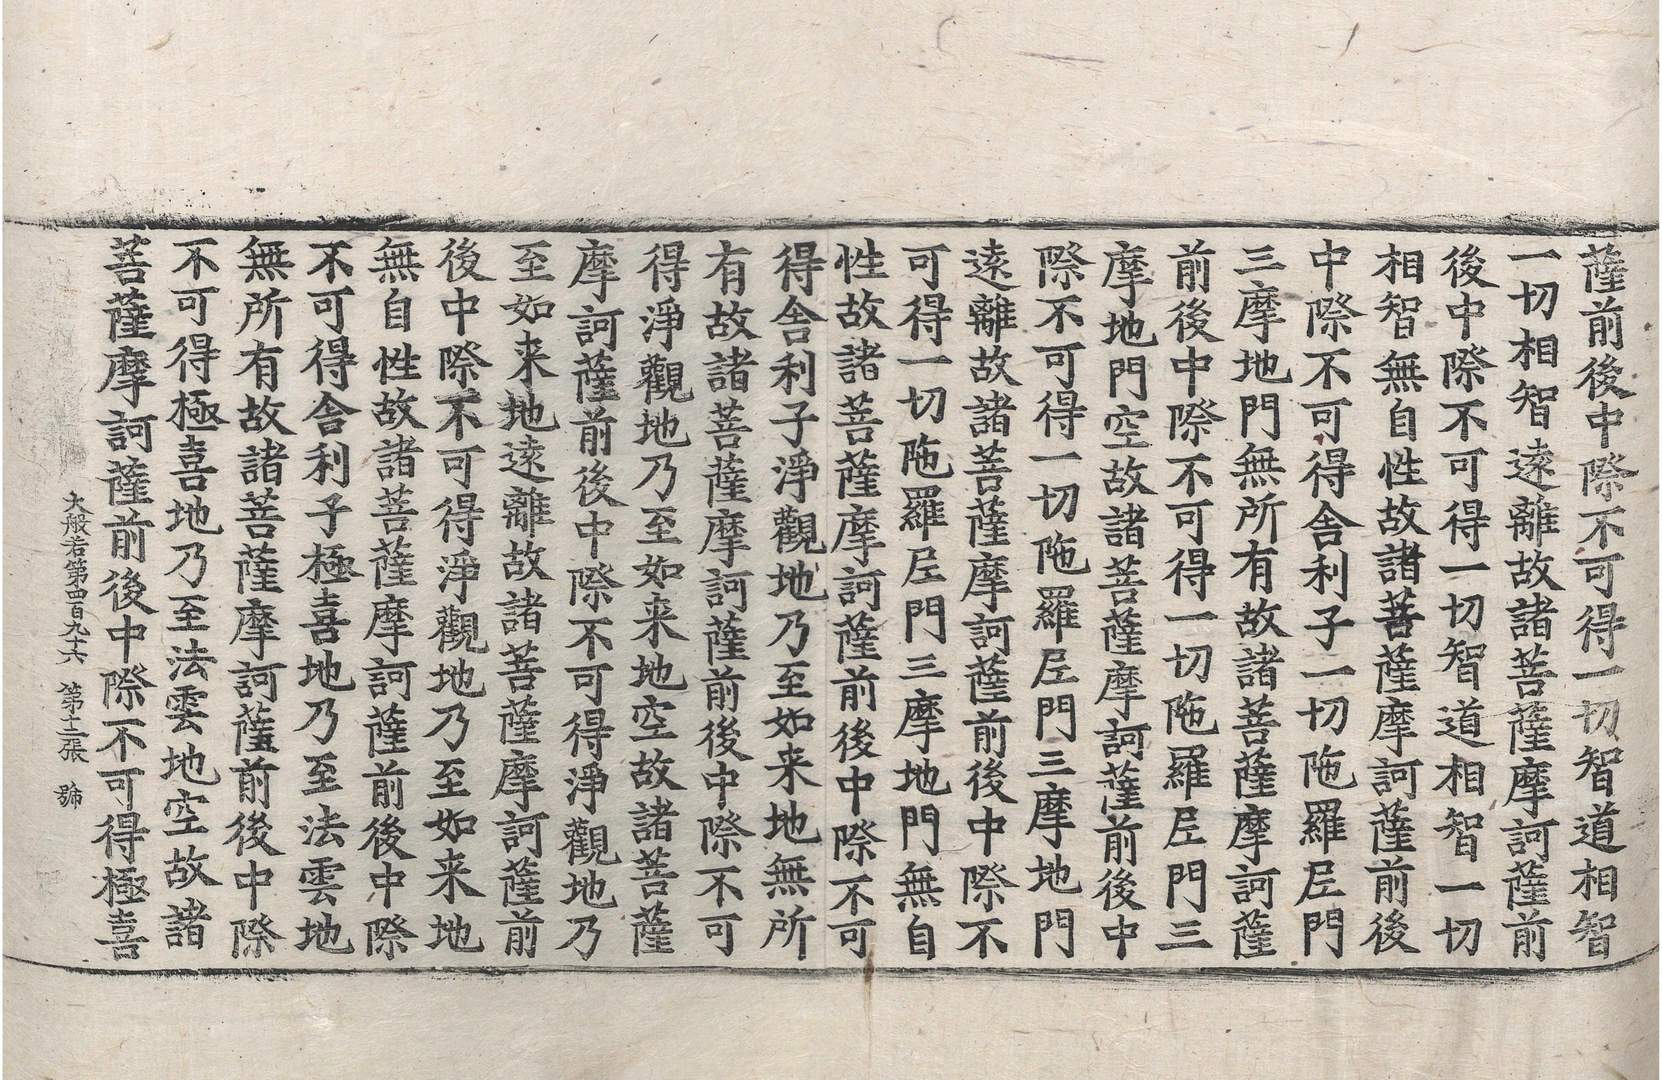 薩前後中際不可得一切智道相智
一切相智遠離故諸菩薩摩訶薩前
後中際不可得一切智道相智一切
相智無自性故諸菩薩摩訶薩前後
中際不可得舍利子一切陁羅尼門
三摩地門無所有故諸菩薩摩訶薩
前後中際不可得一切陁羅尼門三
摩地門空故諸菩薩摩訶薩前後中
際不可得一切陁羅尼門三摩地門
遠離故諸菩薩摩訶薩前後中際不
可得一切陁羅尼門三摩地門無自
性故諸菩薩摩訶薩前後中際不可
得舍利子淨觀地乃至如来地無所
有故諸菩薩摩訶薩前後中際不可
得淨觀地乃至如来地空故諸菩薩
摩訶薩前後中際不可得淨觀地乃
至如来地遠離故諸菩薩摩訶薩前
後中際不可得淨觀地乃至如来地
無自性故諸菩薩摩訶薩前後中際
不可得舍利子極喜地乃至法雲地
無所有故諸菩薩摩訶薩前後中際
不可得極喜地乃至法雲地空故諸
菩薩摩訶薩前後中際不可得極喜
大般若第四百九十六 第十二張 號